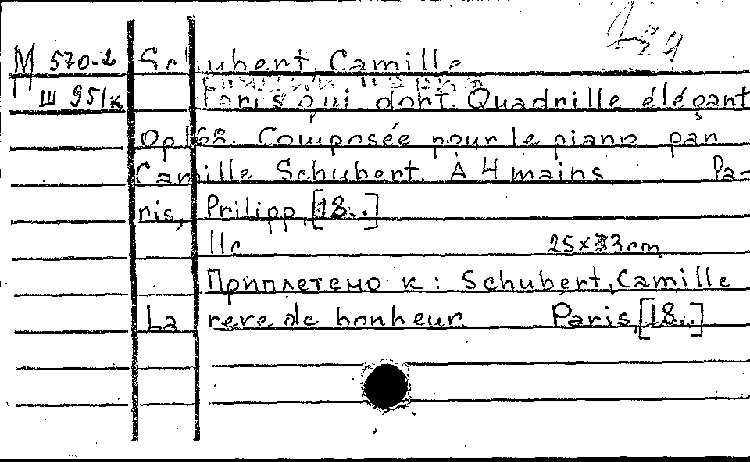 М 570-2 Schubert, Camille
Ш 951к Paris qui dort. Quadrille élégant
Op 168. Composée pour le piano par
Camille Schubert. À 4 mains Pa=
ris, Prilipp, [18..]
11c 25×33cm
Приплетено к: Schubert, Camille
La reve de bonheur. Paris, [18..]